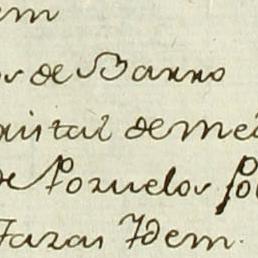 em
os de Barro
ristal de Me
de Pozuelos
Tazas Idem.